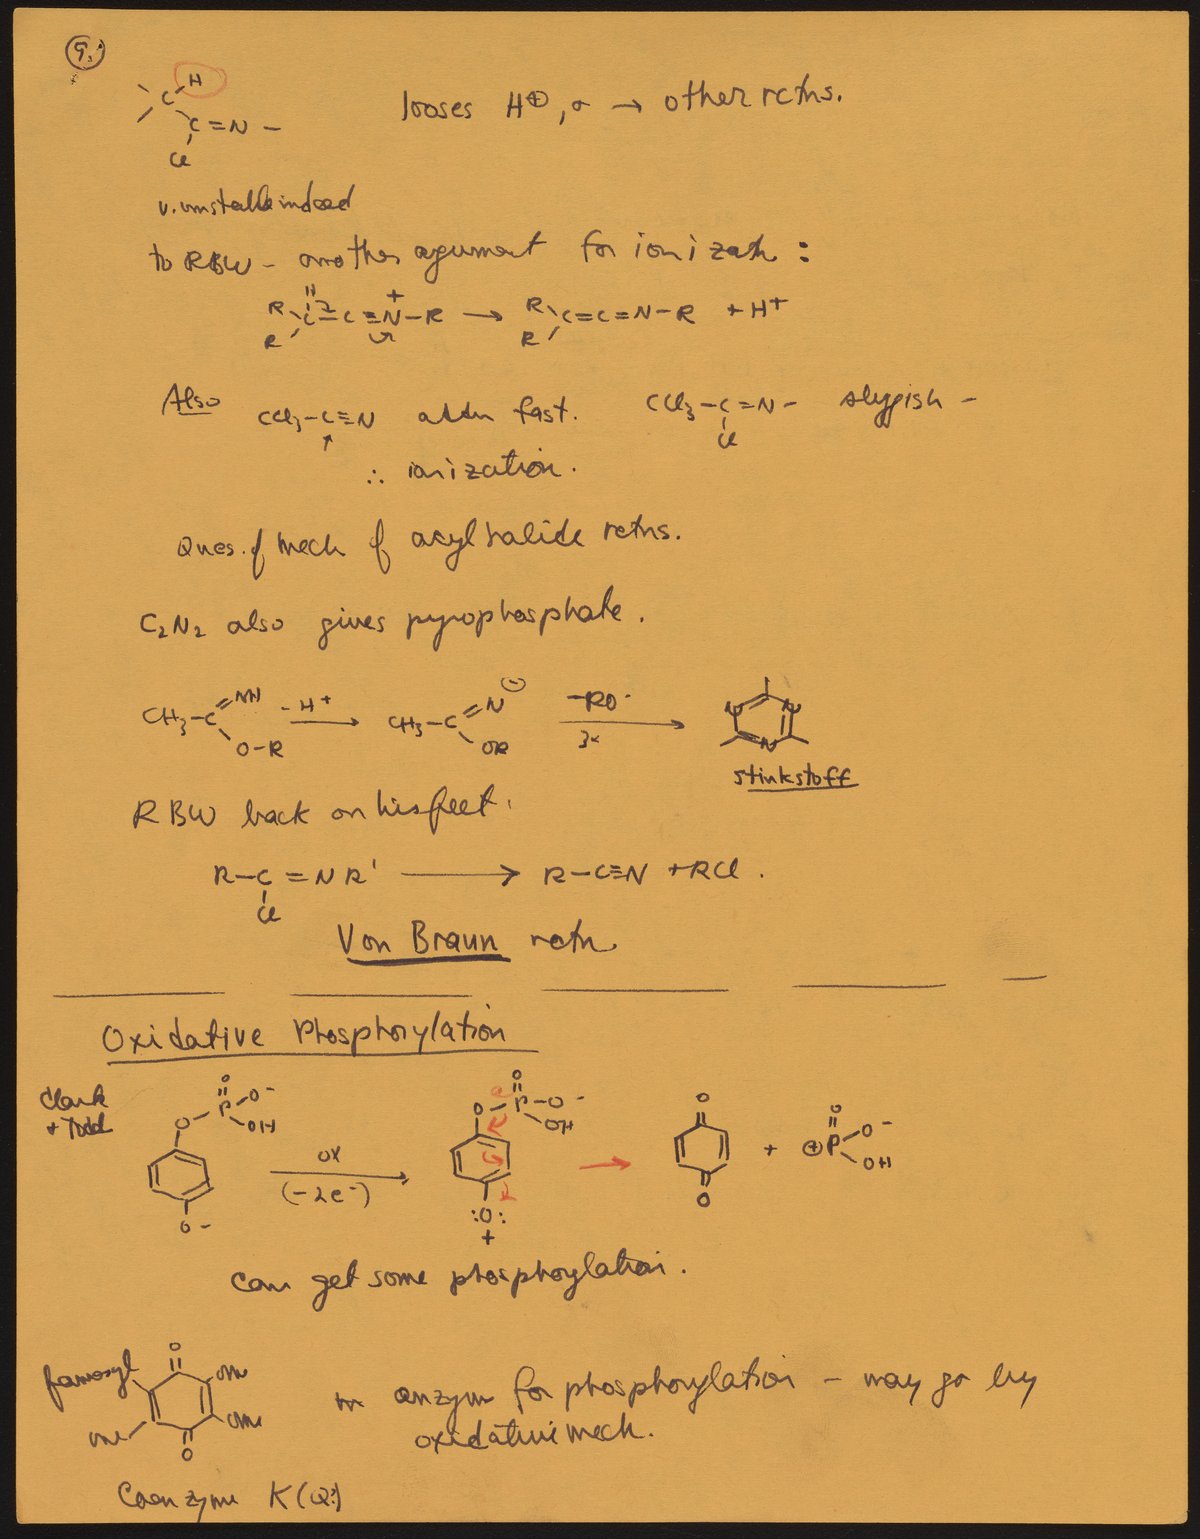 9.
H
C
C=N-
Cl
looses H⊕, σ → other rctns.
v. unstable indeed
to RBW - another agument for ionizatn :
R H +
C-C≡N-R → R C=C=N-R + H+
R R
Also CCl3-C≡N addn fast. CCl3-C=N-
Cl
∴ ionization.
Ques. of mech of acyl halide rctns.
C2N2 also gives pyrophosphate.
CH3-C=NH -H+ → CH3-C=N⊖ -RO- → N N N
O-R OR 3x
stinkstoff
RBW back on his feet.
R-C=NR' → R-C≡N + RCl.
Cl
Von Braun rctn
Oxidative Phosphorylation
Clark
+ Todd
O P O- OH O O-
ox
(-2e-)
O P-O- OH O :O: +
O O + O ⊕P O- OH
can get some phosphorylation.
farnesyl O OMe
OMe
Me O
in enzym for phosphorylation - may go by
oxidative mech.
Coenzyme K(Q?)